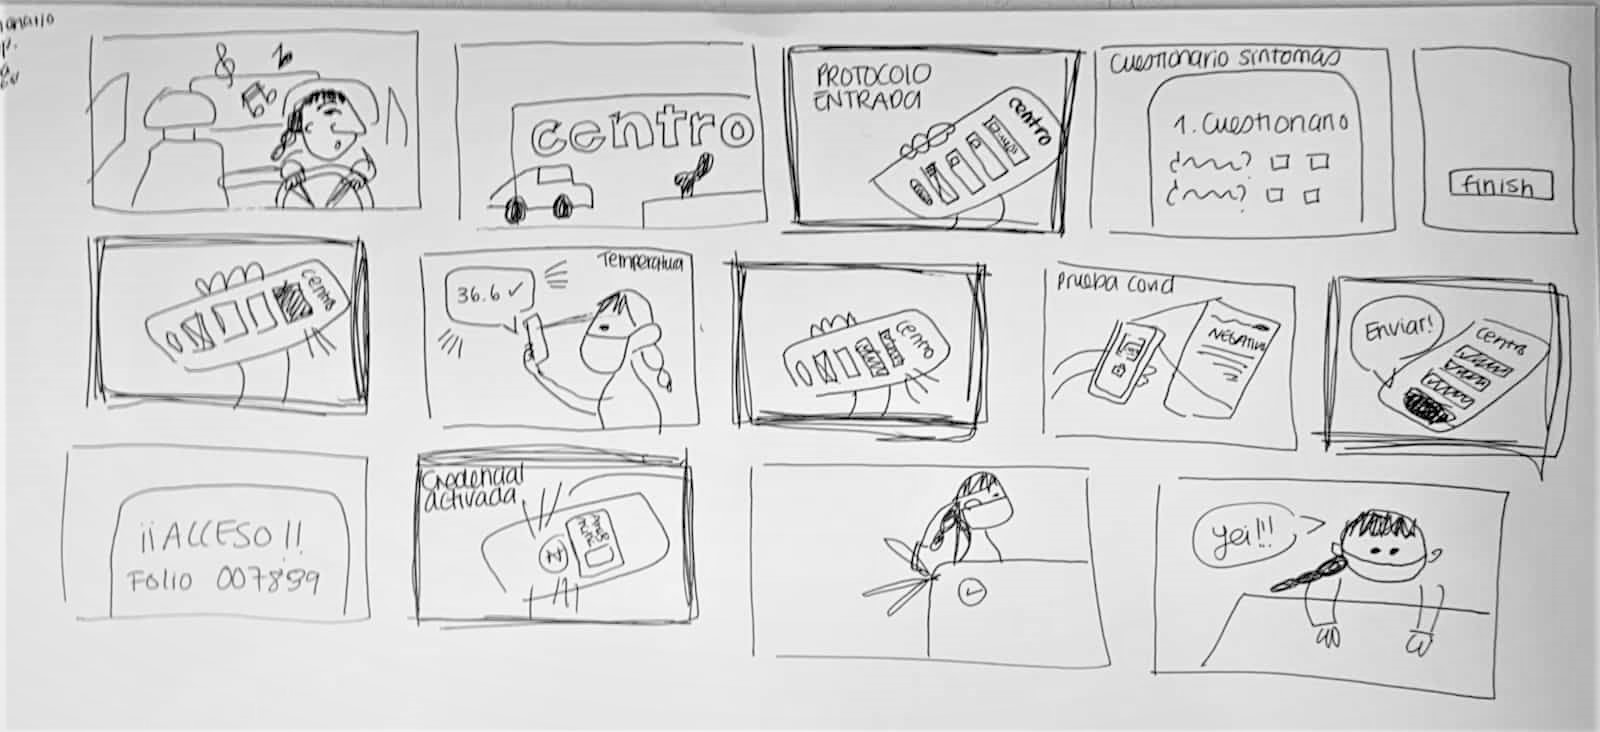 centro
PROTOCOLO
ENTRADA
centro
Cuestionario sintomas
1. Cuestionario
¿ ? 
¿ ?
finish
centro
Temperatura
36.6 ✓
centro
Prueba Covid
NEGATIVO
Enviar!
centro
¡¡ACCESO!!
Folio 007899
Credencial
activada
Yei!!!